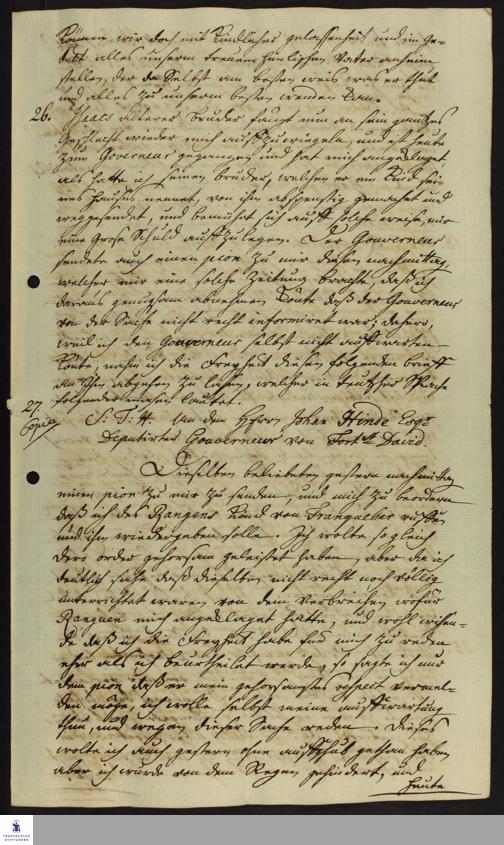 Können wir doch mit kindlicher gelassenheit und in Ge-
dult alles unserm treuen himlischen Vater anheim
stellen, der da Selbst am besten weis was er thut
und alles zu unserm besten wenden kan.
26. Isaacs älterer bruder fängt nun an sein gantzes
Geschlecht wieder mich auffzuwiegeln, und ist heute
zum Governeur gegangen und hat mich angeklaget
als hätte ich seinen bruder, welchen er ein Kind sei-
nes Hauses nennet, von ihm abspenstig gemachet und
weggesendet, und bemühet sich auff solche weise, mir
eine grose Schuld auffzulegen. Der Gouverneur
sendete auch einen pion zu mir diesen nachmittag,
welcher mir eine solche Zeitung brachte, daß ich
daraus genugsam abnehmen konte daß der Gouverneur
von der Sache nicht recht informiret war; dahero,
weil ich dem Gouverneur selbst nicht auffwarten
konte, nahm ich die Freyheit diesen folgenden brieff
an Ihn abgehen zu lassen, welcher in teutscher Sprache
folgender masen lautet.
27.
Copia
S. T. H. An dem Herrn Johan Hinde Esqr
Deputirter Gouverneur von Fort St David.
Dieselben beliebeten gestern nachmittag
einen pion zu mir zu senden, und mich zu beordern
daß ich des Rangens Kind von Tranquebar ruffen
und ihm wiedergeben solle. Ich wolte so gleich
dero order gehorsam geleistet haben, aber da ich
deutlich sahe daß dieselben nicht recht noch völlig
unterrichtet waren von dem Verbrechen wofür
Rangen mich angeklaget hatte, und wohl wissen-
de daß ich die Freyheit habe für mich zu reden
eher als ich beurtheilet werde, so sagte ich nur
dem pion daß er mein gehorsamstes respect vermel-
den möge, ich wolle selbst meine auffwartung
thun, und wegen dieser Sache reden. Dieses
wolte ich auch gestern ohne auffschub gethan haben
aber ich wurde von dem Regen gehindert, und
heute
FRANCKESCHE
STIFTUNGEN